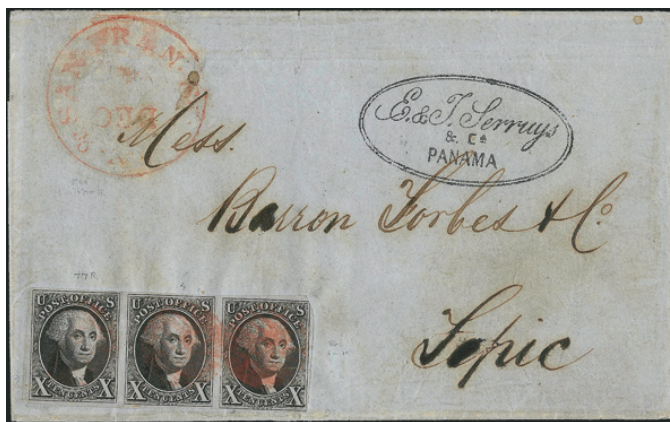 SAN FRAN
DEC
E. & J. Serruys
& Co
PANAMA
Mess.
Barron Forbes & Co
Tepic
U S
POST OFFICE
X TEN CENTS X
U S
POST OFFICE
X TEN CENTS X
U S
POST OFFICE
X TEN CENTS X